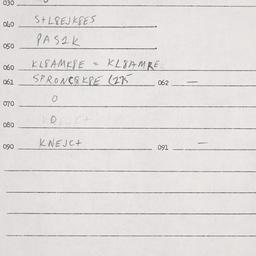 030
040 S+L8EJK8ES
050 PAS2K
060 KL8AMK8E = KL8AMRE
061 SPRONC8K8E 062 —
070 O
080 D
090 KNEJC+ 091 —